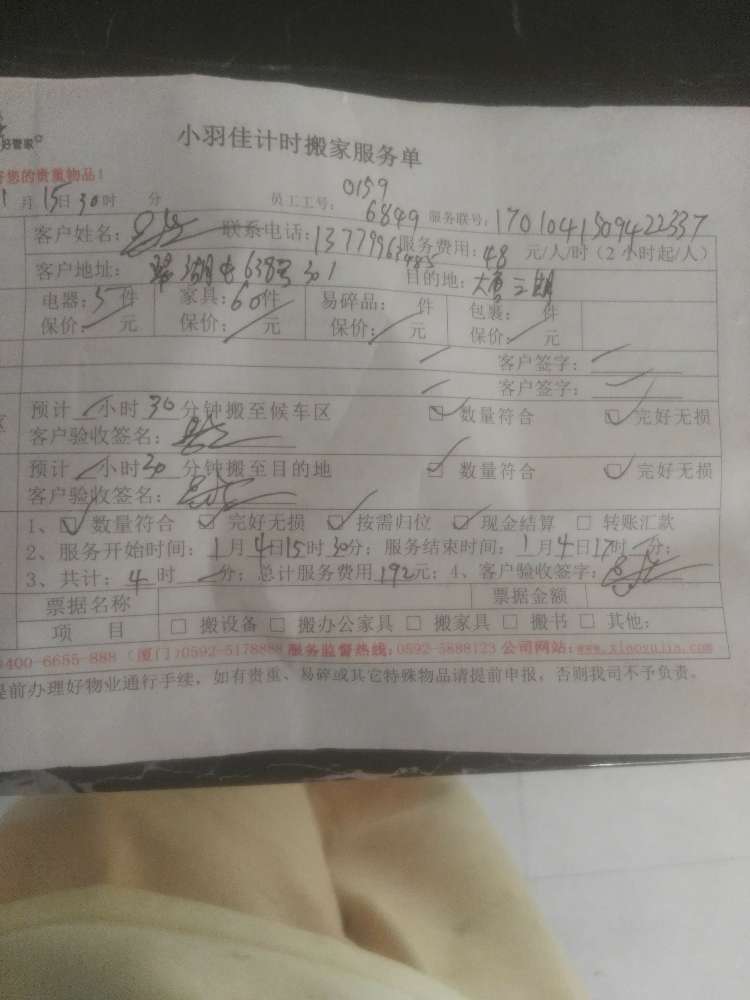 好管家
小羽佳计时搬家服务单
您的贵重物品！
月15日30时 分 员工工号：0159 6849 服务联号：1701041509422337
客户姓名： 联系电话： 服务费用：48元/人/时（2小时起/人）
客户地址： 湖 638号301 目的地： 二期
电器：5件 家具：60件 易碎品： 件 包裹： 件
保价： 元 保价： 元 保价： 元 保价： 元
客户签字：
客户签字：
预计 小时30分钟搬至候车区 ☑数量符合 ☑完好无损
客户验收签名：
预计 小时30分钟搬至目的地 ☑数量符合 ☑完好无损
客户验收签名：
1、☑数量符合 ☑完好无损 ☑按需归位 ☑现金结算 □转账汇款
2、服务开始时间：1月4日15时30分；服务结束时间：1月4日17时 分；
3、共计：4时 分；总计服务费用192元；4、客户验收签字：
票据名称 票据金额
项 目 □搬设备 □搬办公家具 □搬家具 □搬书 □其他：
400-6655-888（厦门）0592-5178888 服务监督热线：0592-5888123 公司网站：www.xiaoyujia.com
提前办理好物业通行手续，如有贵重、易碎或其它特殊物品请提前申报，否则我司不予负责。